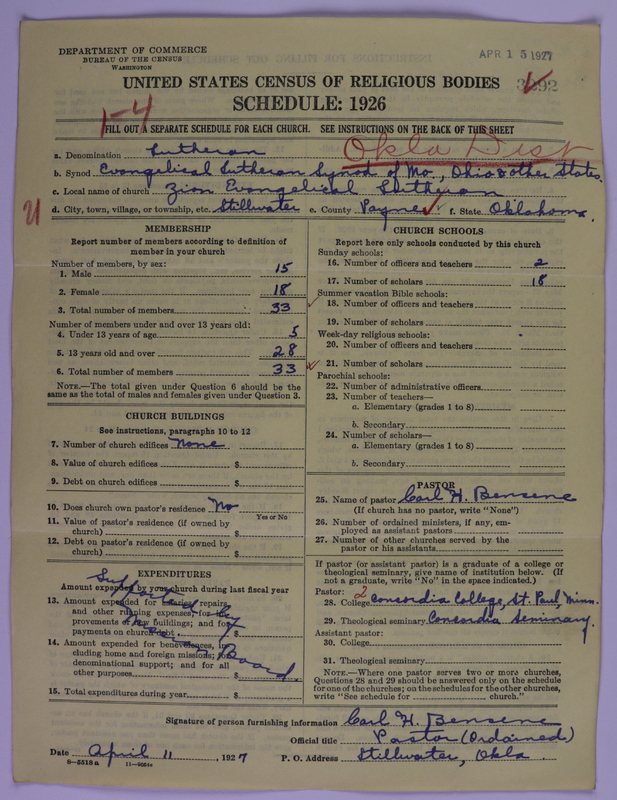 DEPARTMENT OF COMMERCE
BUREAU OF THE CENSUS
WASHINGTON
APR 15 1927
UNITED STATES CENSUS OF RELIGIOUS BODIES
SCHEDULE: 1926
1-4
FILL OUT A SEPARATE SCHEDULE FOR EACH CHURCH. SEE INSTRUCTIONS ON THE BACK OF THIS SHEET
Okla Dist
a. Denomination Lutheran
b. Synod Evangelical Lutheran Synod of Mo., Ohio & other States.
c. Local name of church Zion Evangelical Lutheran
d. City, town, village, or township, etc. Stillwater e. County Payne f. State Oklahoma.
MEMBERSHIP
Report number of members according to definition of
member in your church
Number of members, by sex:
1. Male 15
2. Female 18
3. Total number of members 33
Number of members under and over 13 years old:
4. Under 13 years of age 5
5. 13 years old and over 28
6. Total number of members 33
NOTE.—The total given under Question 6 should be the
same as the total of males and females given under Question 3.
CHURCH BUILDINGS
See instructions, paragraphs 10 to 12
7. Number of church edifices None
8. Value of church edifices $
9. Debt on church edifices $
10. Does church own pastor's residence No
Yes or No
11. Value of pastor's residence (if owned by
church) $
12. Debt on pastor's residence (if owned by
church) $
EXPENDITURES
Amount expended by your church during last fiscal year
13. Amount expended for salaries, repairs,
and other running expenses; for im-
provements or new buildings; and for
payments on church debt $
14. Amount expended for benevolences, in-
cluding home and foreign missions; for
denominational support; and for all
other purposes $
Supported by
Mission Board
15. Total expenditures during year $
CHURCH SCHOOLS
Report here only schools conducted by this church
Sunday schools:
16. Number of officers and teachers 2
17. Number of scholars 18
Summer vacation Bible schools:
18. Number of officers and teachers
19. Number of scholars
Week-day religious schools:
20. Number of officers and teachers
21. Number of scholars
Parochial schools:
22. Number of administrative officers
23. Number of teachers—
a. Elementary (grades 1 to 8)
b. Secondary
24. Number of scholars—
a. Elementary (grades 1 to 8)
b. Secondary
PASTOR
25. Name of pastor Carl H. Bensene
(If church has no pastor, write "None")
26. Number of ordained ministers, if any, em-
ployed as assistant pastors
27. Number of other churches served by the
pastor or his assistants
If pastor (or assistant pastor) is a graduate of a college or
theological seminary, give name of institution below. (If
not a graduate, write "No" in the space indicated.)
Pastor: 2
28. College Concordia College, St. Paul, Minn.
29. Theological seminary Concordia Seminary.
Assistant pastor:
30. College
31. Theological seminary
NOTE.—Where one pastor serves two or more churches,
Questions 28 and 29 should be answered only on the schedule
for one of the churches; on the schedules for the other churches,
write "See schedule for church."
Signature of person furnishing information Carl H. Bensene
Official title Pastor (Ordained)
Date April 11, 1927 P. O. Address Stillwater, Okla.
8-5518a